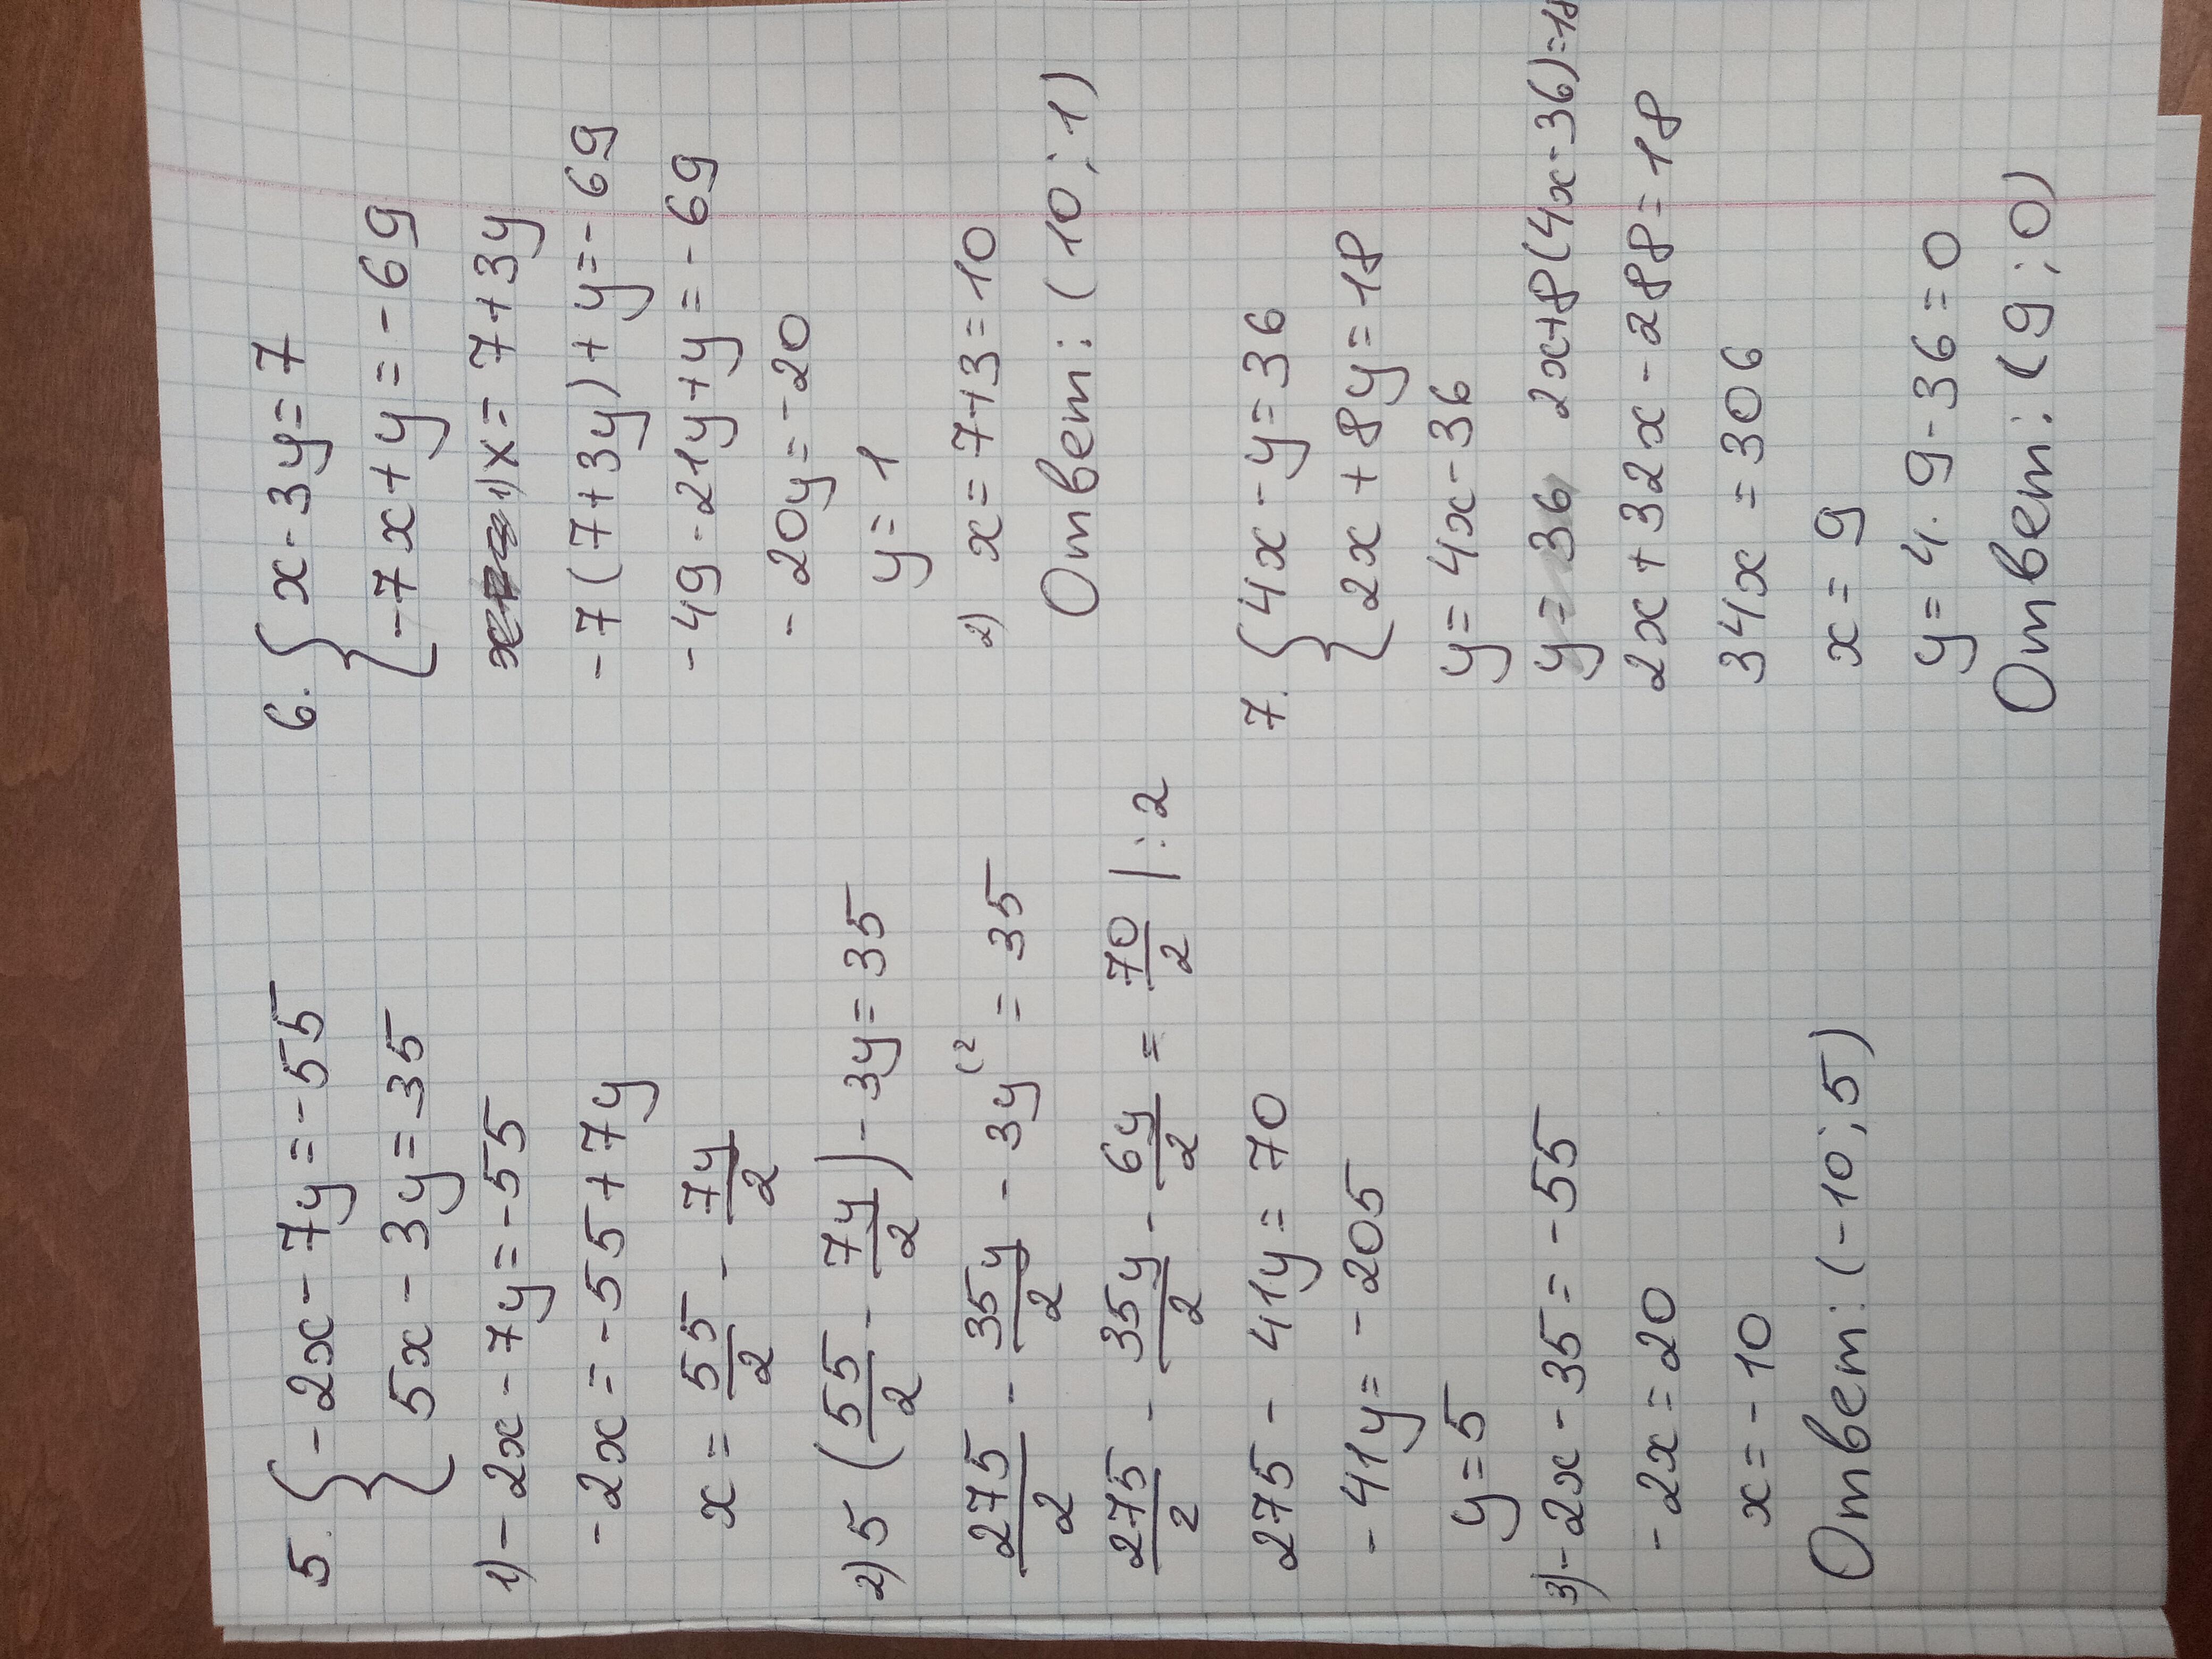 5. { -2x - 7y = -55
5x - 3y = 35
1) - 2x - 7y = -55
- 2x = -55 + 7y
x = 55/2 - 7y/2
2) 5 (55/2 - 7y/2) - 3y = 35
275/2 - 35y/2 - 3y⁽² = 35
275/2 - 35y/2 - 6y/2 = 70/2 | : 2
275 - 41y = 70
- 41y = - 205
y = 5
3) - 2x - 35 = -55
- 2x = 20
x = - 10
Ответ: (-10; 5)
6. { x - 3y = 7
-7x + y = - 69
1) x = 7 + 3y
-7 (7 + 3y) + y = - 69
- 49 - 21y + y = - 69
- 20y = -20
y = 1
2) x = 7 + 3 = 10
Ответ: (10; 1)
7. { 4x - y = 36
2x + 8y = 18
y = 4x - 36
y = 36 2x + 8(4x - 36) = 18
2x + 32x - 288 = 18
34x = 306
x = 9
y = 4 · 9 - 36 = 0
Ответ: (9; 0)